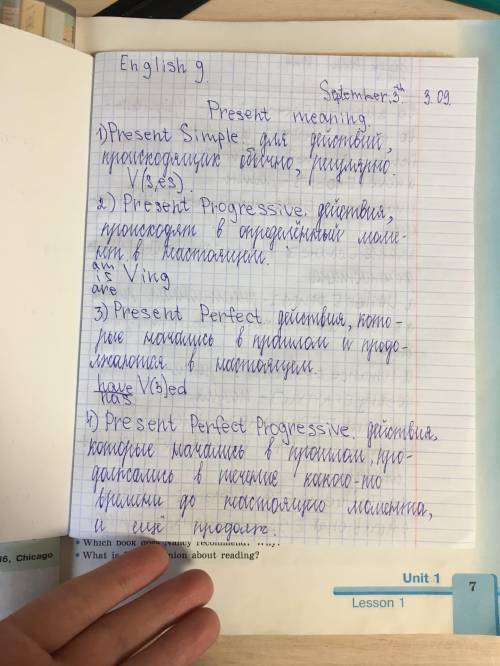 English 9.
September, 3th 3.09
Present meaning
1) Present Simple для действий,
происходящих обычно, регулярно.
V(s,es).
2) Present Progressive. действия,
происходят в определённый моме-
нт в настоящем.
am
is Ving
are
3) Present Perfect действия, кото-
рые начались в прошлом и продо-
лжаются в настоящем.
have V(3)ed
has
4) Present Perfect Progressive. действия,
которые начались в прошлом, про-
должались в течение какого-то
времени до настоящего момента,
и ещё продолж.
• Which book does Nancy recommend? Why?
16, Chicago
• What is nion about reading?
Unit 1
Lesson 1
7